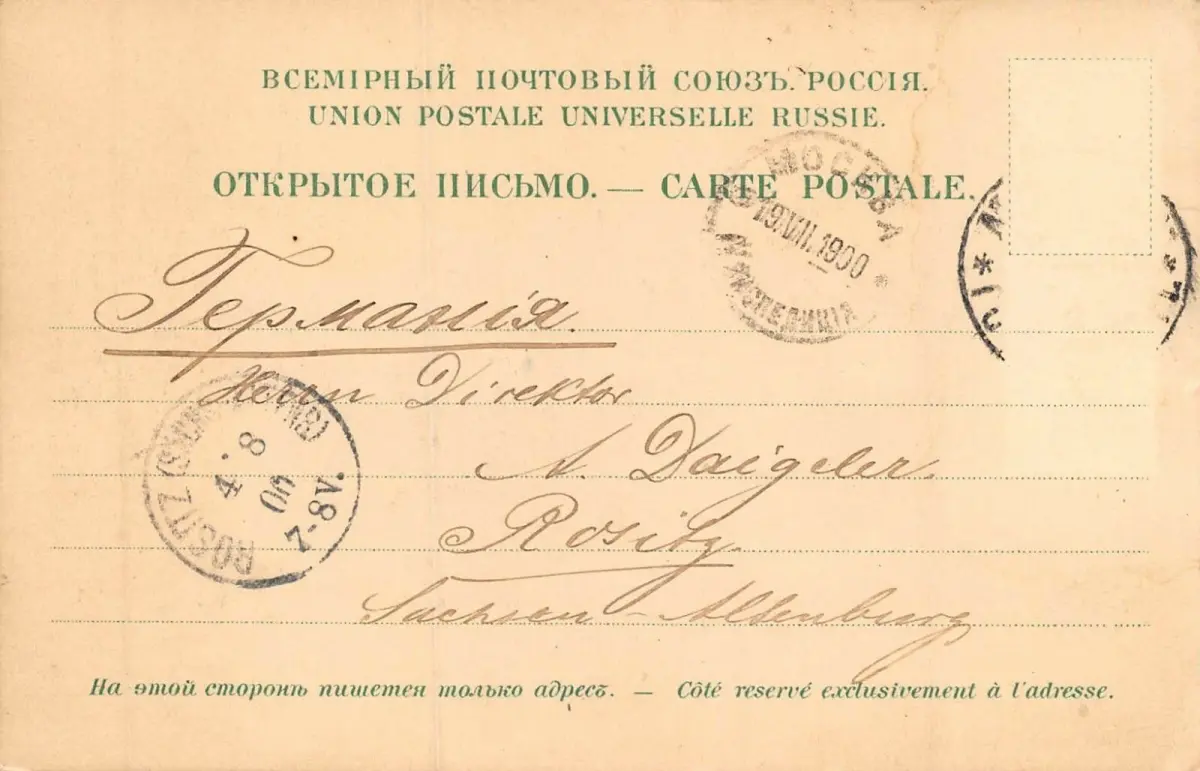 ВСЕМІРНЫЙ ПОЧТОВЫЙ СОЮЗЪ. РОССІЯ.
UNION POSTALE UNIVERSELLE RUSSIE.
ОТКРЫТОЕ ПИСЬМО. — CARTE POSTALE.
МОСКВА
19.VII.1900
Германія.
Herrn Direktor
A. Daigeler
Rositz
Sachsen-Altenburg
ROSITZ
4.8
00
7-8V.
На этой сторонѣ пишется только адресъ. — Côté reservé exclusivement à l'adresse.